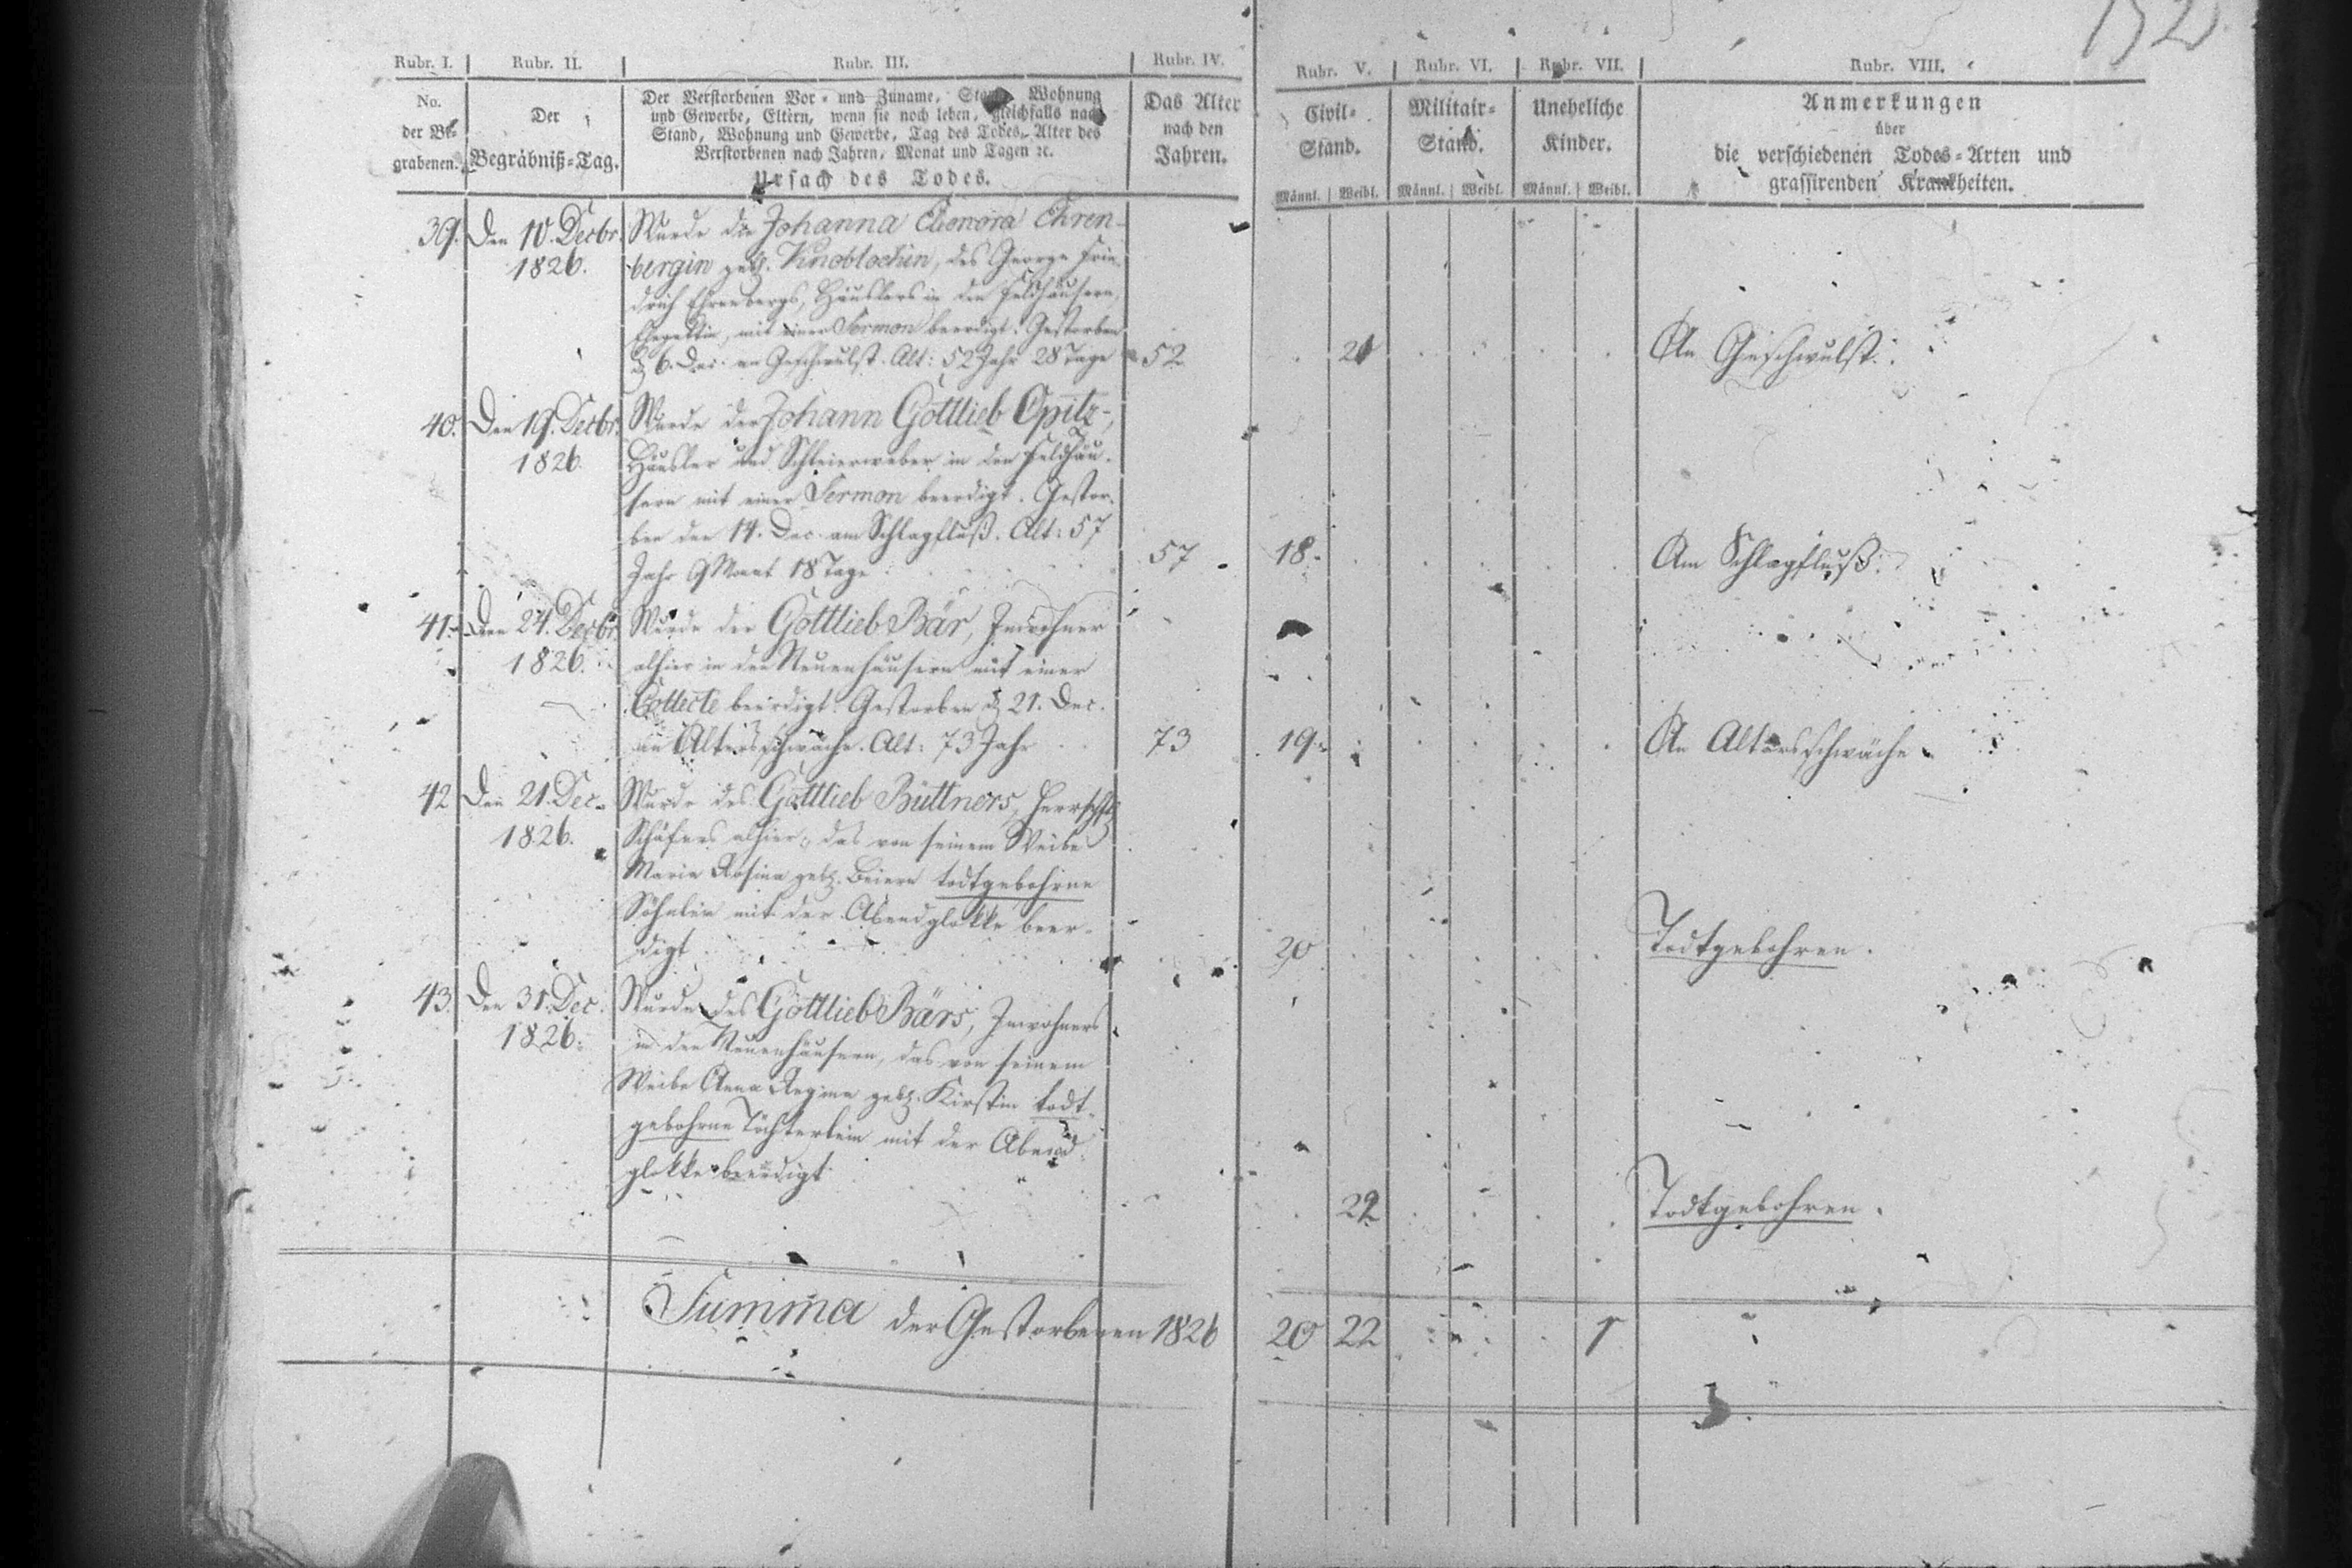 152
Rubr. I. Rubr. II. Rubr. III. Rubr. IV. Rubr. V. Rubr. VI. Rubr. VII. Rubr. VIII.
No.
der Be-
grabenen.
Der
Begräbniß-Tag.
Der Verstorbenen Vor- und Zuname, Stand, Wohnung
und Gewerbe, Eltern, wenn sie noch leben, gleichfalls nach
Stand, Wohnung und Gewerbe, Tag des Todes, Alter des
Verstorbenen nach Jahren, Monat und Tagen ꝛc.
Ursach des Todes.
Das Alter
nach den
Jahren.
Civil-
Stand.
Männl. Weibl.
Militair-
Stand.
Männl. Weibl.
Uneheliche
Kinder.
Männl. Weibl.
Anmerkungen
über
die verschiedenen Todes-Arten und
grassirenden Krankheiten.
39. Den 10. Decbr.
1826.
Wurde die Johanna Eleonora Ehren-
bergin geb. Knoblochin, des George Frie-
drich Ehrenbergs, Häuslers in den Feldhäusern,
Ehegattin, mit einer Sermon beerdigt. Gestorben
d. 6. Dec. an Geschwulst. Alt: 52 Jahr 28 Tage
52 21 An Geschwulst.
40. Den 19. Decbr.
1826.
Wurde der Johann Gottlieb Opitz,
Häusler und Schleierweber in den Feldhäu-
sern mit einer Sermon beerdigt. Gestor-
ben den 14. Dec. am Schlagfluß. Alt: 57
Jahr 9 Monat 18 Tage
57 18. Am Schlagfluß.
41. Den 24. Decbr.
1826.
Wurde der Gottlieb Bär, Inwohner
alhier in den Neuenhäusern mit einer
Collecte beerdigt. Gestorben d. 21. Dec.
an Altersschwäche. Alt: 73 Jahr
73 19. An Altersschwäche.
42 Den 21. Dec.
1826.
Wurde des Gottlieb Büttners, herrschftl.
Schäfers alhier, das von seinem Weibe
Maria Rosina geb. Beiern todtgebohrne
Söhnlein mit der Abendglokke beer-
digt
20 Todtgebohren.
43. Den 31. Dec.
1826.
Wurde des Gottlieb Bärs, Inwohners
in den Neuenhäusern, das von seinem
Weibe Anna Regina geb. Kirstin todt-
gebohrne Töchterlein mit der Abend-
glokke beerdigt
22 Todtgebohren.
Summa der Gestorbenen 1826 20 22 1